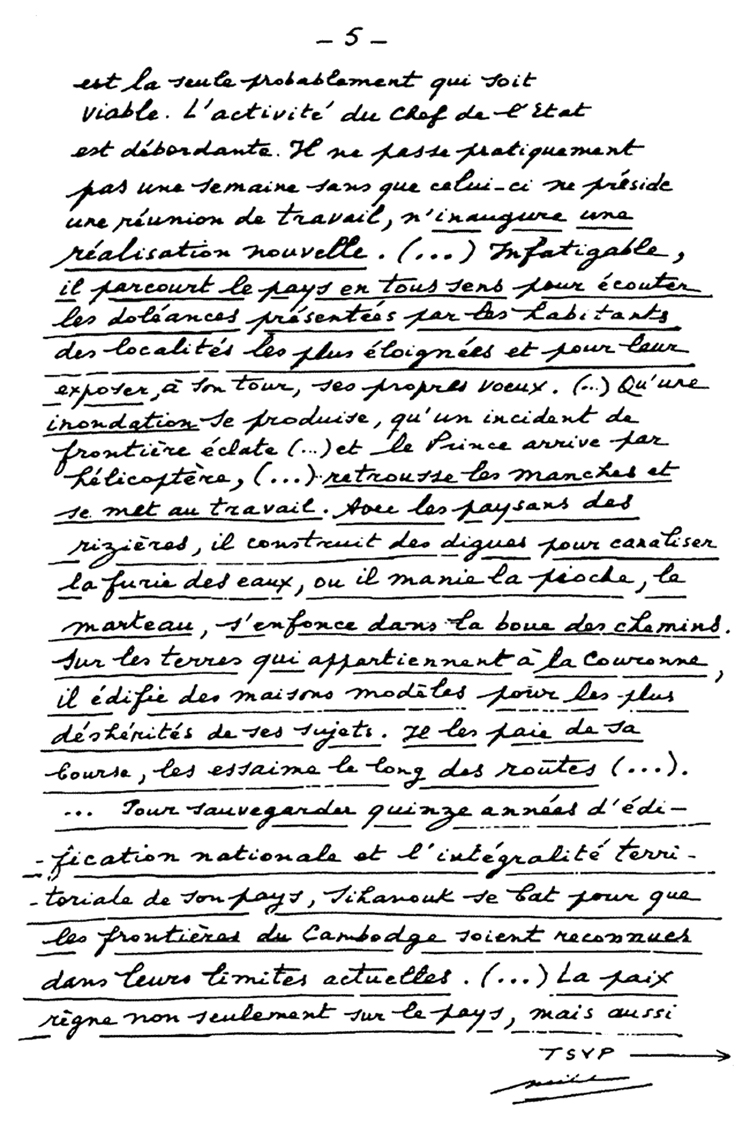 - 5 -
est la seule probablement qui soit
viable. L'activité du Chef de l'Etat
est débordante. Il ne passe pratiquement
pas une semaine sans que celui-ci ne préside
une réunion de travail, n'inaugure une
réalisation nouvelle. (...) Infatigable,
il parcourt le pays en tous sens pour écouter
les doléances présentées par les habitants
des localités les plus éloignées et pour leur
exposer, à son tour, ses propres voeux. (...) Qu'une
inondation se produise, qu'un incident de
frontière éclate (...) et le Prince arrive par
hélicoptère, (...) retrousse les manches et
se met au travail. Avec les paysans des
rizières, il construit des digues pour canaliser
la furie des eaux, ou il manie la pioche, le
marteau, s'enfonce dans la boue des chemins.
Sur les terres qui appartiennent à la Couronne,
il édifie des maisons modèles pour les plus
déshérités de ses sujets. Il les paie de sa
bourse, les essaime le long des routes (...).
... Pour sauvegarder quinze années d'édi-
-fication nationale et l'intégralité terri-
-toriale de son pays, Sihanouk se bat pour que
les frontières du Cambodge soient reconnues
dans leurs limites actuelles. (...) La paix
règne non seulement sur le pays, mais aussi
TSVP